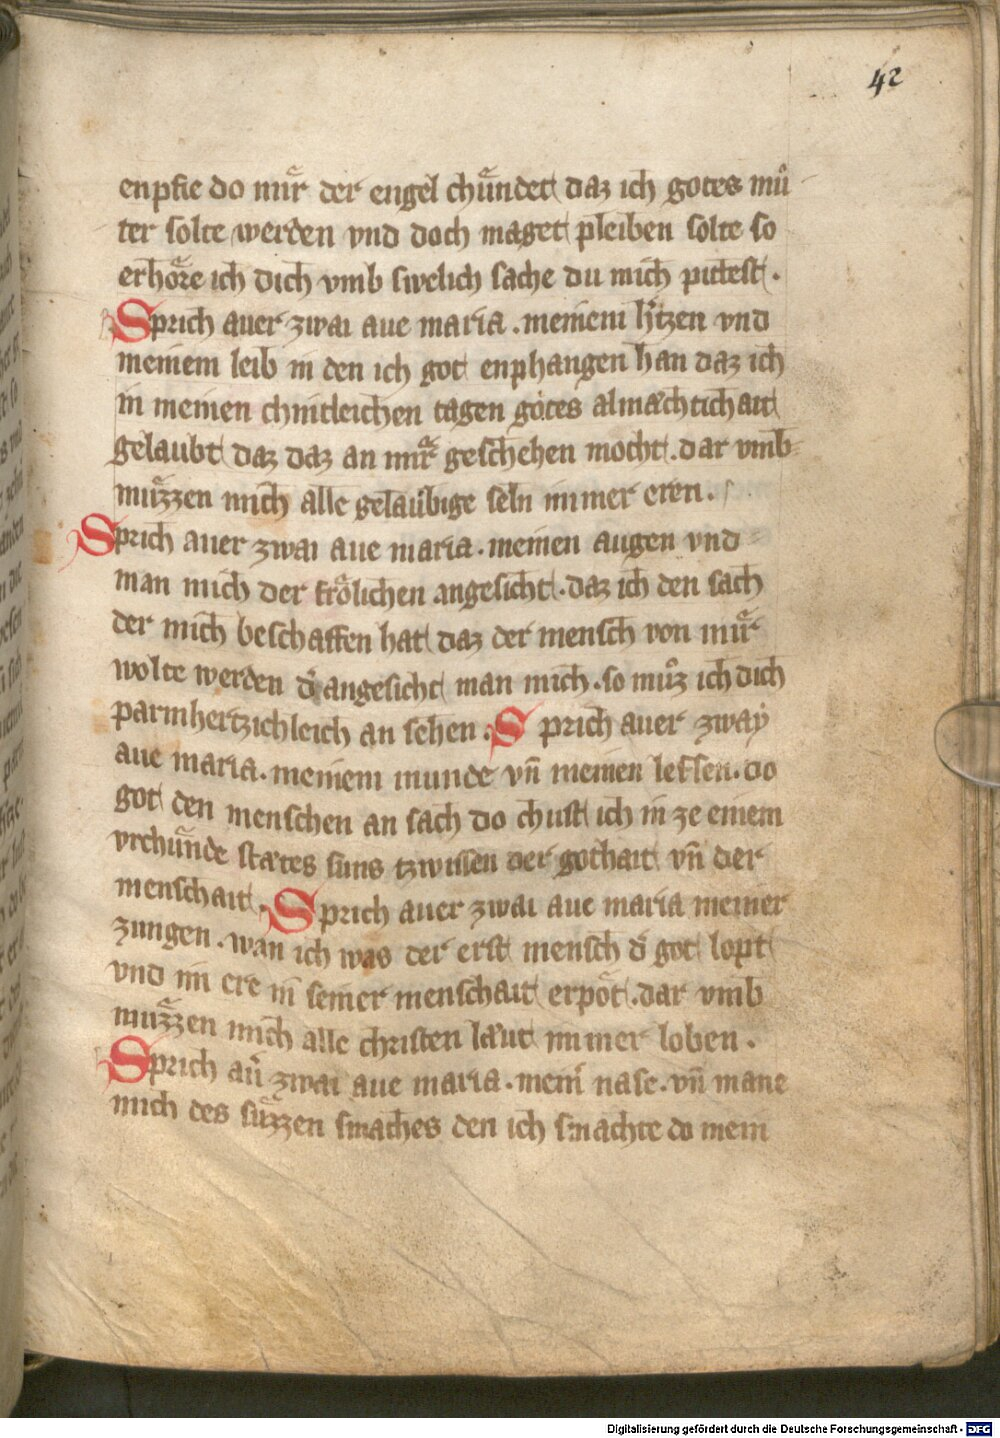 42
enpfie do mir der engel chündet daz ich gotes mů
ter solte werden vnd doch maget pleiben solte so
erhöre ich dich vmb swelich sache du mich pittest.
Sprich auer zwai aue maria. meinem h'tzen vnd
meinem leib in den ich got enphangen han daz ich
in meinen chintleichen tagen gotes almächtichait
gelaubt daz daz an mir geschehen mocht. dar vmb
müzzen mich alle gelaubige seln immer eren.
Sprich auer zwai aue maria. meinen augen vnd
man mich der frölichen angesicht. daz ich den sach
der mich beschaffen hat daz der mensch von mir
wolte werden d' angesicht man mich. so můz ich dich
parmhertzichleich an sehen. Sprich auer zway
aue maria. meinem munde vñ meinen lefsen. do
got den menschen an sach do chust ich in ze einem
vrchünde stätes suns tzwissen der gothait vñ der
menschait. Sprich auer zwai aue maria meiner
zungen. wan ich was der erst mensch d' got lopt
vnd im ere in seiner menschait erpöt. dar vmb
müzzen mich alle christen läut immer loben.
Sprich au' zwai aue maria. mein' nase. vñ mane
mich des süzzen smaches den ich smachte do mein
Digitalisierung gefördert durch die Deutsche Forschungsgemeinschaft - DFG